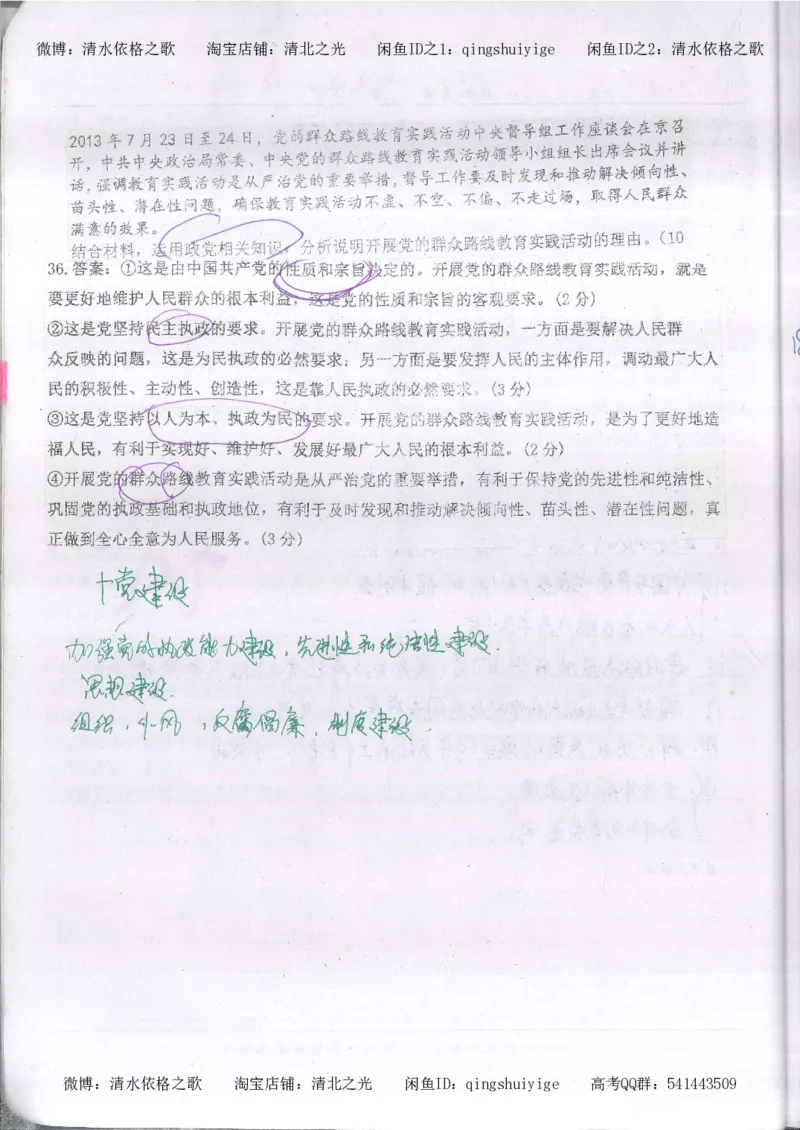 微博：清水依格之歌 淘宝店铺：清北之光 闲鱼ID之1：qingshuiyige 闲鱼ID之2：清水依格之歌
2013年7月23日至24日，党的群众路线教育实践活动中央督导组工作座谈会在京召
开，中共中央政治局常委、中央党的群众路线教育实践活动领导小组组长出席会议并讲
话，强调教育实践活动是从严治党的重要举措，督导工作要及时发现和推动解决倾向性、
苗头性、潜在性问题，确保教育实践活动不虚、不空、不偏、不走过场，取得人民群众
满意的效果。
结合材料，运用政党相关知识，分析说明开展党的群众路线教育实践活动的理由。（10
36.答案：①这是由中国共产党的性质和宗旨决定的。开展党的群众路线教育实践活动，就是
要更好地维护人民群众的根本利益，这是党的性质和宗旨的客观要求。（2分）
②这是党坚持民主执政的要求。开展党的群众路线教育实践活动，一方面是要解决人民群
众反映的问题，这是为民执政的必然要求；另一方面是要发挥人民的主体作用，调动最广大人
民的积极性、主动性、创造性，这是靠人民执政的必然要求。（3分）
③这是党坚持以人为本、执政为民的要求。开展党的群众路线教育实践活动，是为了更好地造
福人民，有利于实现好、维护好、发展好最广大人民的根本利益。（2分）
④开展党的群众路线教育实践活动是从严治党的重要举措，有利于保持党的先进性和纯洁性、
巩固党的执政基础和执政地位，有利于及时发现和推动解决倾向性、苗头性、潜在性问题，真
正做到全心全意为人民服务。（3分）
十党建设
加强党的执政能力建设，先进性和纯洁性建设.
思想建设.
组织，作风，反腐倡廉，制度建设.
微博：清水依格之歌 淘宝店铺：清北之光 闲鱼ID：qingshuiyige 高考QQ群：541443509